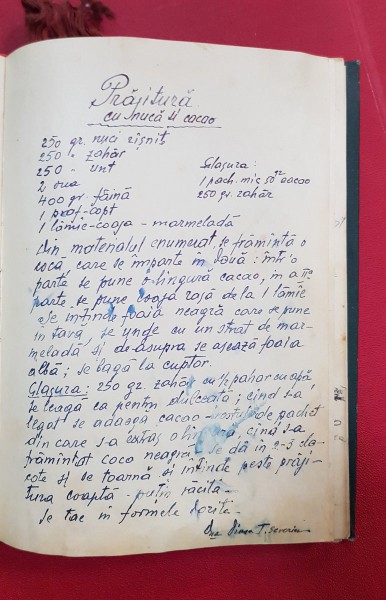 Prăjitură
cu nucă și cacao
250 gr. nuci rîșniț
250 " zahăr
250 " unt
2 oua
400 gr. făină
1 praf-copt
1 lămîe-coaja - marmeladă
Glasura:
1 pach. mic 50 gr cacao
250 gr. zahăr
Din materialul enumerat se frămîntă o
cocă, care se împarte în două: într'o
parte se pune o lingură cacao, în a II a
parte se pune coajă rasă de la 1 lămîe
Se întinde foaia neagră care se pune
în tavă, se unge cu un strat de mar-
meladă și de-asupra se așează foaia
albă; se bagă la cuptor.
Glasura: 250 gr. zahăr cu ½ pahar cu apă
te leagă ca pentru dulceață; cînd s-a
legat se adaogă cacao - restul de pachet
din care s-a extras o cînd s-a
frămîntat coca neagră se dă în 2-3 clo-
cote și se toarnă și întinde peste prăji-
tura coaptă - puțin răcită -
Se tae în formele dorite -
T. Severin